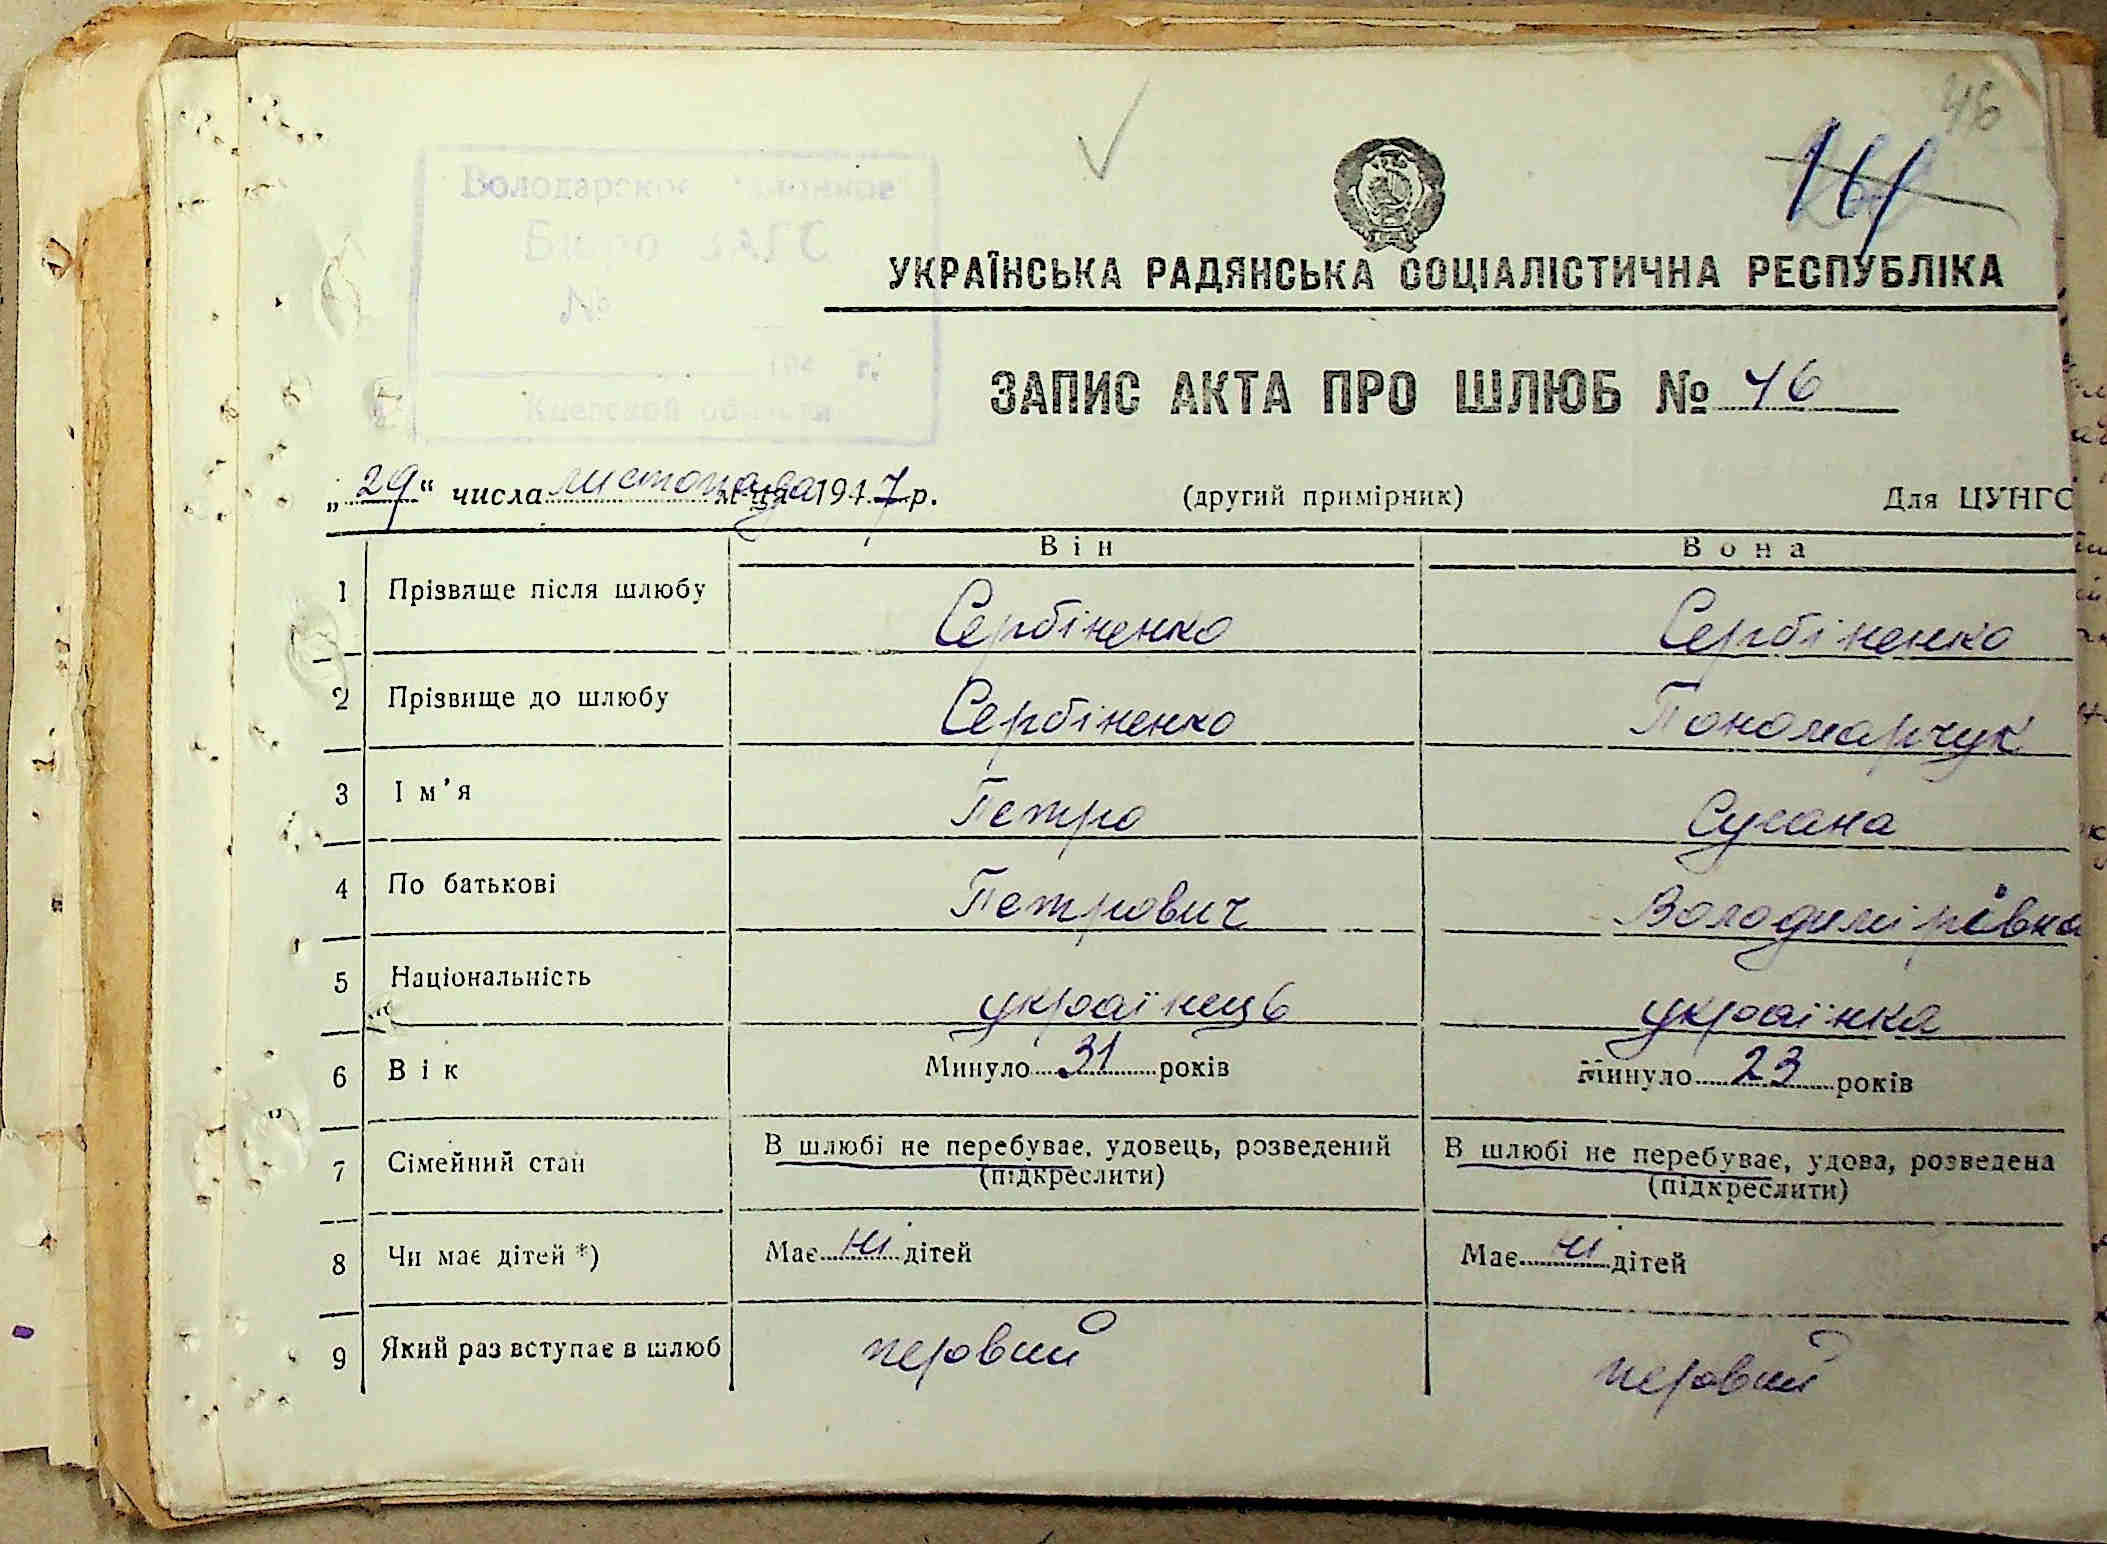 46
161
Володарское районное
Бюро ЗАГС
№
194 г.
Киевской области
УКРАЇНСЬКА РАДЯНСЬКА СОЦІАЛІСТИЧНА РЕСПУБЛІКА
ЗАПИС АКТА ПРО ШЛЮБ № 46
„29“ числа листопада м-ця 1947 р. (другий примірник) Для ЦУНГС
Він Вона
1 Прізвище після шлюбу Сербіненко Сербіненко
2 Прізвище до шлюбу Сербіненко Пономарчук
3 Ім’я Петро Сусана
4 По батькові Петрович Володимірівна
5 Національність українець українка
6 Вік Минуло 31 років Минуло 23 років
7 Сімейний стан В шлюбі не перебуває, удовець, розведений В шлюбі не перебуває, удова, розведена
(підкреслити) (підкреслити)
8 Чи має дітей *) Має ні дітей Має ні дітей
9 Який раз вступає в шлюб первий первий